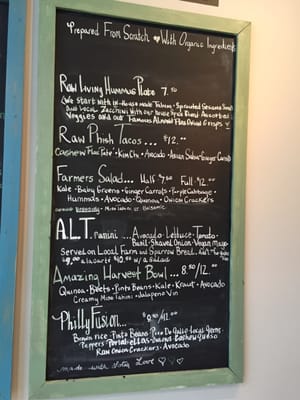 Prepared From Scratch With Organic Ingredients
Raw Living Hummus Plate 7.50
(We start with in-House made Tahini · Sprouted Sesame
and Local Zucchini with our house
Veggies and our Famous Almond Flax Onion Crisps
Raw Phish Tacos... $12.00
Cashew Flax "Pate" · Kim Chi · Avocado · Asian Salsa · Ginger Carrots
Farmers Salad... Half $7.50 Full $12.00
Kale · Baby Greens · Ginger Carrots · Purple Cabbage
Hummus · Avocado · Quinoa · Onion Crackers
Miso Tahini or Balsamic
A.L.T. panini ... Avocado · Lettuce · Tomato
Basil · Shaved Onion · Vegan Mayo
Served on Local Farm and Sparrow Bread
$9.00 a la carte $10.00 w/ a salad
Amazing Harvest Bowl ... 8.50/12.00
Quinoa · Beets · Pinto Beans · Kale · Kraut · Avocado
Creamy Miso Tahini · Jalapeno Vin
Philly Fusion...
Brown rice · Pinto Beans · Pico De Gallo · Local Greens
Peppers · Portabellas · Cashew Queso
Raw Onion Crackers · Avocado
made with Love